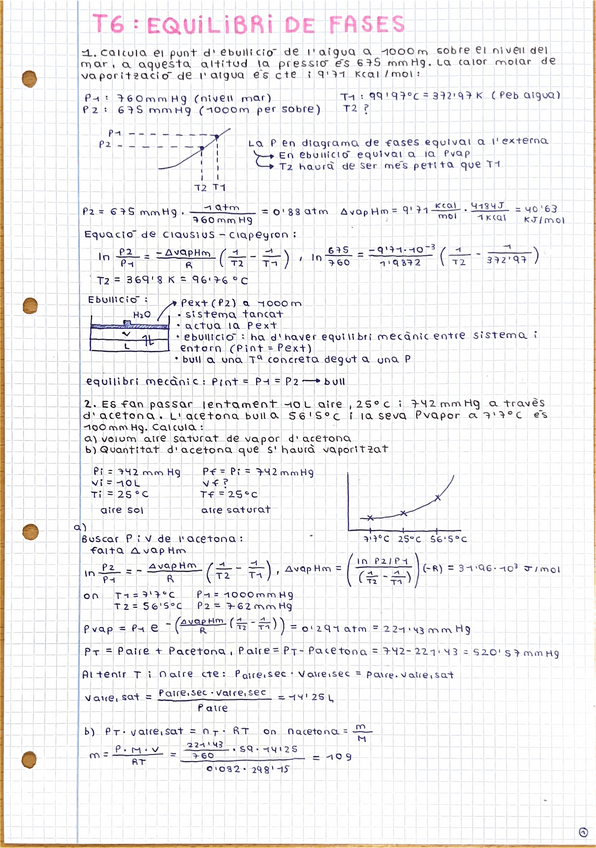 T6: EQUILIBRI DE FASES
1. Calcula el punt d'ebullició de l'aigua a 1000m sobre el nivell del
mar, a aquesta altitud la pressió és 675 mmHg. La calor molar de
vaporització de l'aigua és cte i 9'71 Kcal/mol:
P1: 760mmHg (nivell mar) T1: 99'97°C = 372'97 K (Peb aigua)
P2: 675 mmHg (1000m per sobre) T2 ?
P1
P2
T2 T1
La P en diagrama de fases equival a l'externa
En ebullició equival a la Pvap
T2 haurà de ser més petita que T1
P2 = 675 mmHg · 1atm / 760mmHg = 0'88 atm ΔvapHm = 9'71 Kcal/mol · 4184J / 1Kcal = 40'63 KJ/mol
Equació de Clausius-Clapeyron:
ln P2/P1 = -ΔvapHm/R (1/T2 - 1/T1), ln 675/760 = -9'71·10⁻³/1'9872 (1/T2 - 1/372'97)
T2 = 369'8 K = 96'76 °C
Ebullició:
Pext (P2) a 1000m
H2O
V
L
· sistema tancat
· actua la Pext
· ebullició: ha d'haver equilibri mecànic entre sistema i
entorn (Pint = Pext)
· bull a una Tª concreta degut a una P
equilibri mecànic: Pint = P1 = P2 → bull
2. Es fan passar lentament 10L aire, 25°C i 742 mmHg a través
d'acetona. L'acetona bull a 56'5°C i la seva Pvapor a 7'7°C és
100 mmHg. Calcula:
a) volum aire saturat de vapor d'acetona
b) Quantitat d'acetona que s'haurà vaporitzat
Pi = 742 mmHg Pf = Pi = 742mmHg
Vi = 10L Vf?
Ti = 25°C Tf = 25°C
aire sol aire saturat
7'7°C 25°C 56'5°C
a)
Buscar P i V de l'acetona:
falta ΔvapHm
ln P2/P1 = - ΔvapHm/R (1/T2 - 1/T1), ΔvapHm = (ln P2/P1 / (1/T2 - 1/T1)) (-R) = 31'96·10³ J/mol
on T1 = 7'7°C P1 = 1000mmHg
T2 = 56'5°C P2 = 762 mmHg
Pvap = P1 e -(ΔvapHm/R (1/T2 - 1/T1)) = 0'291 atm = 221'43 mmHg
PT = Paire + Pacetona, Paire = PT - Pacetona = 742-221'43 = 520'57 mmHg
Al tenir T i n aire cte: Paire,sec · Vaire,sec = Paire · Vaire,sat
Vaire,sat = Paire,sec · Vaire,sec / Paire = 14'25L
b) PT · Vaire,sat = nT · RT on nacetona = m/M
m = P·M·V / RT = 221'43/760 · 59 · 14'25 / 0'082 · 298'15 = 10g
1